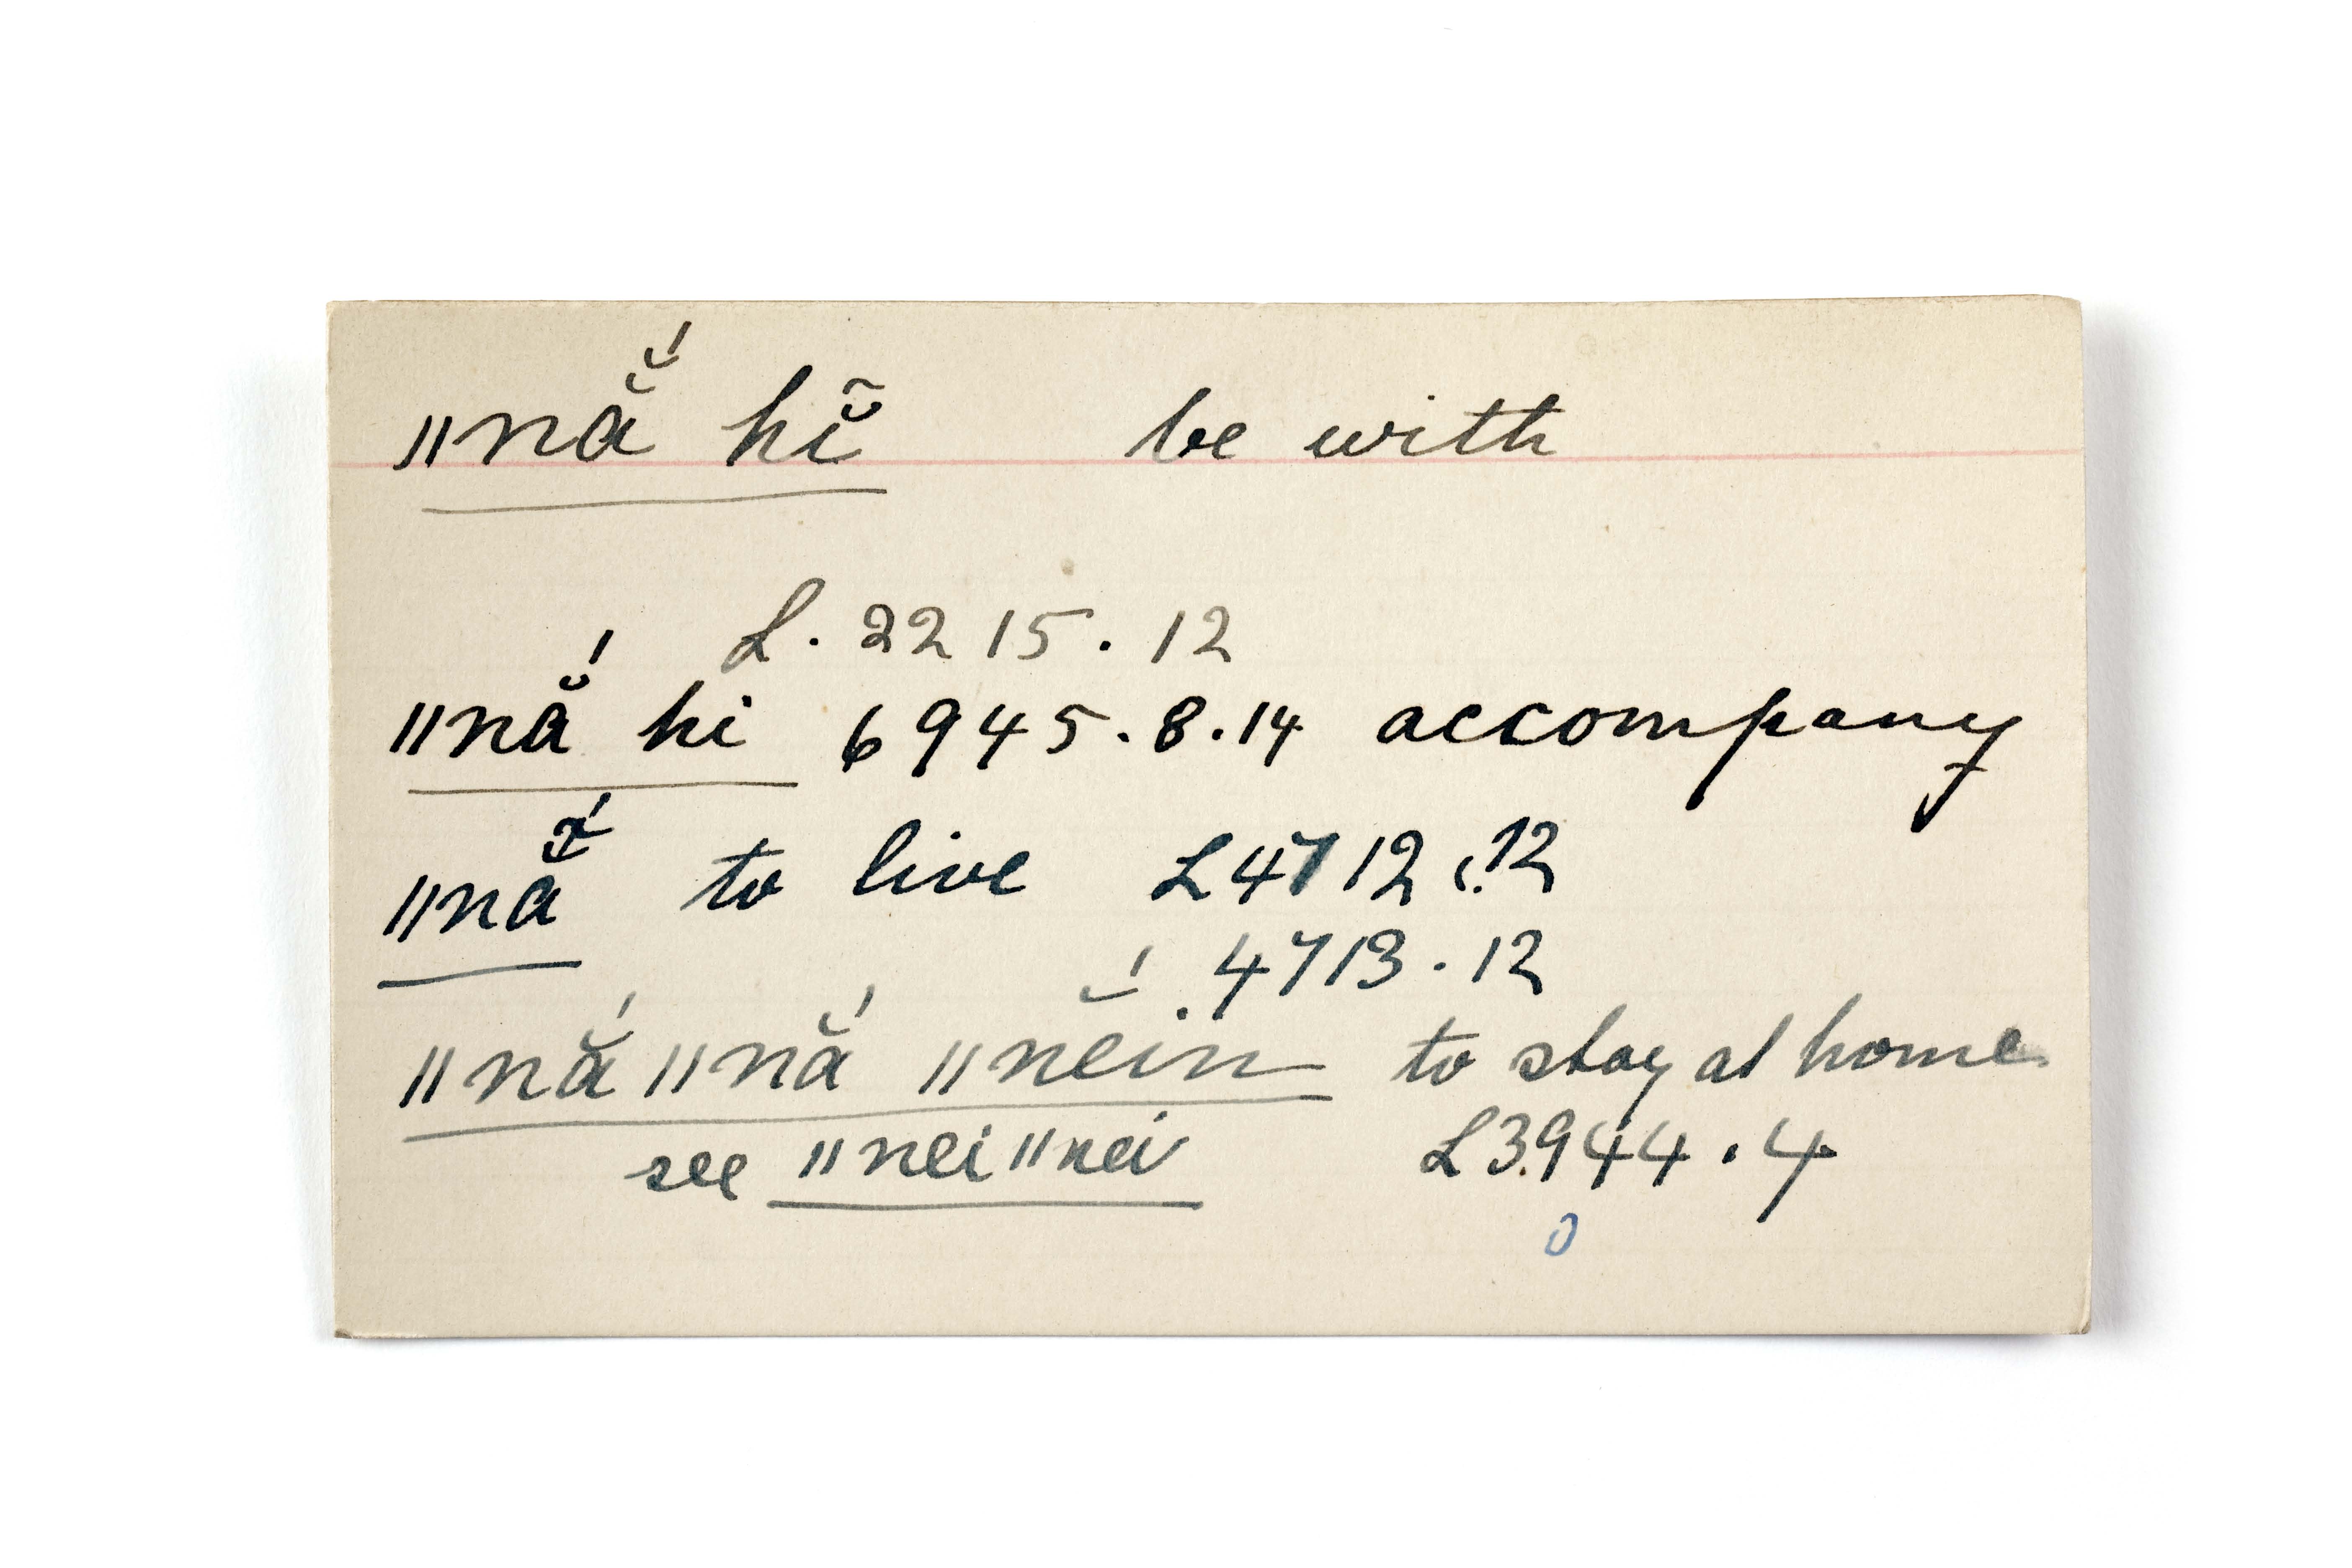 ǁnằ́ hĭ̃ be with
L. 2215.12
ǁnắ hi 6945.8.14 accompany
ǁnắ to live L4712.12
4713.12
ǁnắ ǁnắ ǁnĕ́in to stay at home
see ǁnei ǁnei L3944.4